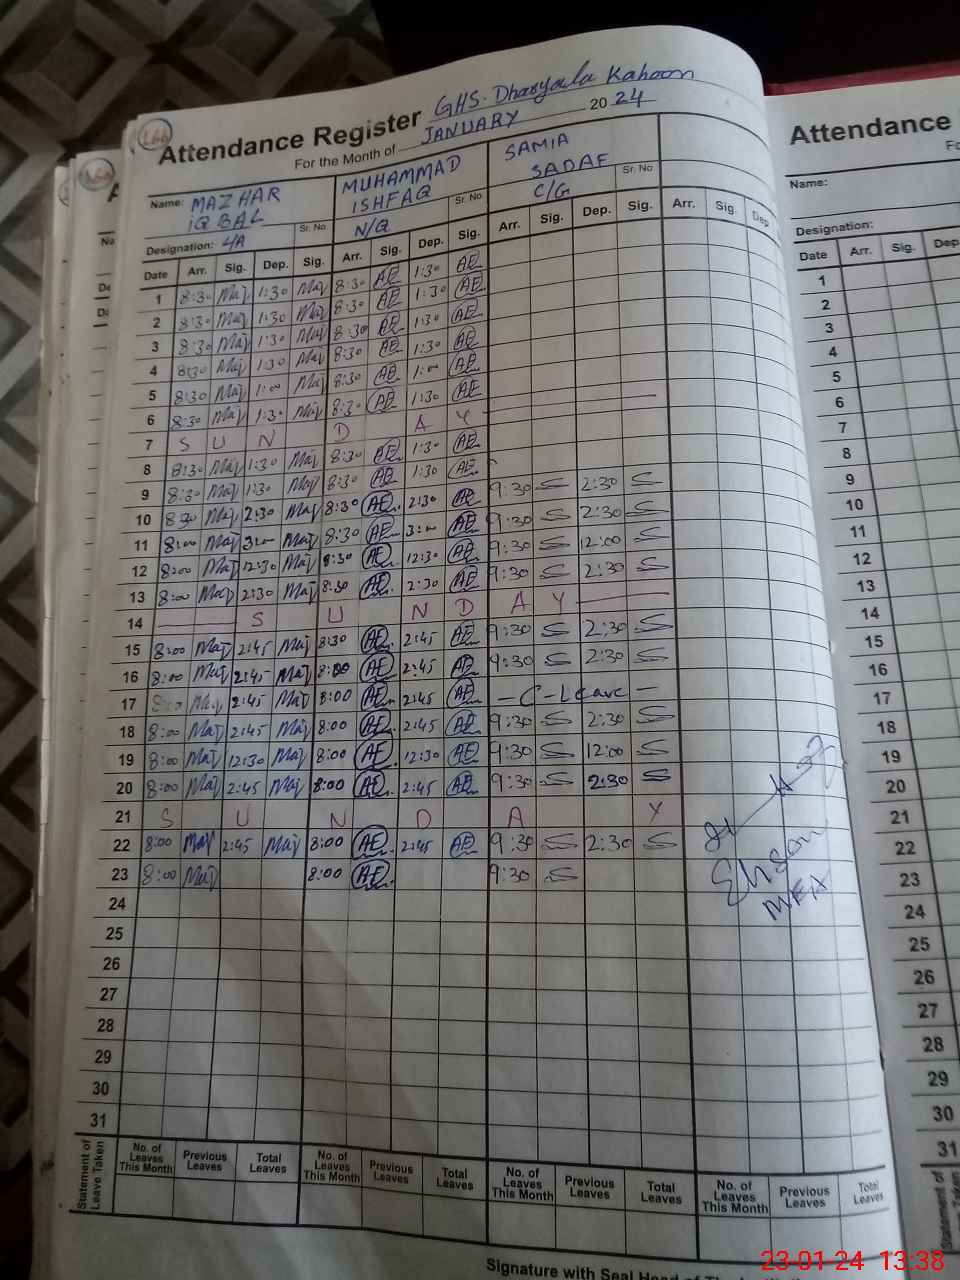 166
Attendance Register GHS. Dharyala Kahoon
For the Month of JANUARY 2024
Name: MAZHAR IQBAL Sr. No MUHAMMAD ISHFAQ Sr. No SAMIA SADAF Sr. No
Designation: LIA N/Q C/G
Date Arr. Sig. Dep. Sig. Arr. Sig. Dep. Sig. Arr. Sig. Dep. Sig. Arr. Sig. Dep.
1 8:30 Maj 1:30 Maj 8:30 AE 1:30 AE
2 8:30 Maj 1:30 Maj 8:30 AE 1:30 AE
3 8:30 Maj 1:30 Maj 8:30 AE 1:30 AE
4 8:30 Maj 1:30 Maj 8:30 AE 1:30 AE
5 8:30 Maj 1:00 Maj 8:30 AE 1:00 AE
6 8:30 Maj 1:30 Maj 8:30 AE 1:30 AE
7 S U N D A Y
8 8:30 Maj 1:30 Maj 8:30 AE 1:30 AE
9 8:30 Maj 1:30 Maj 8:30 AE 1:30 AE
10 8:30 Maj 2:30 Maj 8:30 AE 2:30 AE 9:30 S 2:30 S
11 8:00 Maj 3:00 Maj 8:30 AE 3:00 AE 9:30 S 2:30 S
12 8:00 Maj 12:30 Maj 8:30 AE 12:30 AE 9:30 S 12:00 S
13 8:00 Maj 2:30 Maj 8:30 AE 2:30 AE 9:30 S 2:30 S
14 S U N D A Y
15 8:00 Maj 2:45 Maj 8:30 AE 2:45 AE 9:30 S 2:30 S
16 8:00 Maj 2:45 Maj 8:00 AE 2:45 AE 9:30 S 2:30 S
17 8:00 Maj 2:45 Maj 8:00 AE 2:45 AE - C-Leave -
18 8:00 Maj 2:45 Maj 8:00 AE 2:45 AE 9:30 S 2:30 S
19 8:00 Maj 12:30 Maj 8:00 AE 12:30 AE 9:30 S 12:00 S
20 8:00 Maj 2:45 Maj 8:00 AE 2:45 AE 9:30 S 2:30 S
21 S U N D A Y
22 8:00 Maj 2:45 Maj 8:00 AE 2:45 AE 9:30 S 2:30 S
23 8:00 Maj 8:00 AE 9:30 S
Ehsan
MEA
24
25
26
27
28
29
30
31
Statement of Leave Taken
No. of Leaves This Month Previous Leaves Total Leaves No. of Leaves This Month Previous Leaves Total Leaves No. of Leaves This Month Previous Leaves Total Leaves No. of Leaves This Month Previous Leaves Total Leaves
Signature with Seal Head of
Attendance
Name:
Designation:
Date Arr. Sig. Dep.
1
2
3
4
5
6
7
8
9
10
11
12
13
14
15
16
17
18
19
20
21
22
23
24
25
26
27
28
29
30
31
23-01-24 13:38